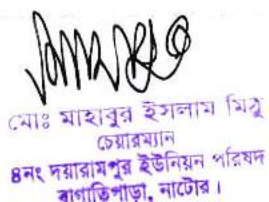 মোঃ মাহাবুর ইসলাম মিঠু
চেয়ারম্যান
৪নং দয়ারামপুর ইউনিয়ন পরিষদ
বাগাতিপাড়া, নাটোর।